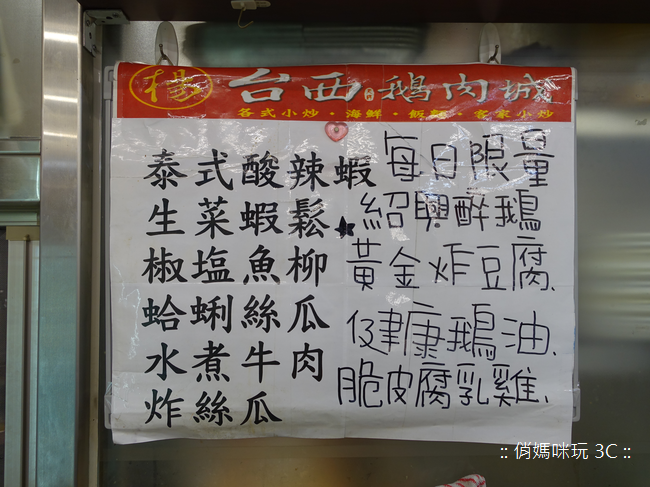 楊 台西鵝肉城
各式小炒・海鮮・飯麵・客家小炒
泰式酸辣蝦
生菜蝦鬆
椒塩魚柳
蛤蜊絲瓜
水煮牛肉
炸絲瓜
每日限量
★紹興醉鵝
黃金炸豆腐.
健康鵝油.
脆皮腐乳雞.
:: 俏媽咪玩 3C ::